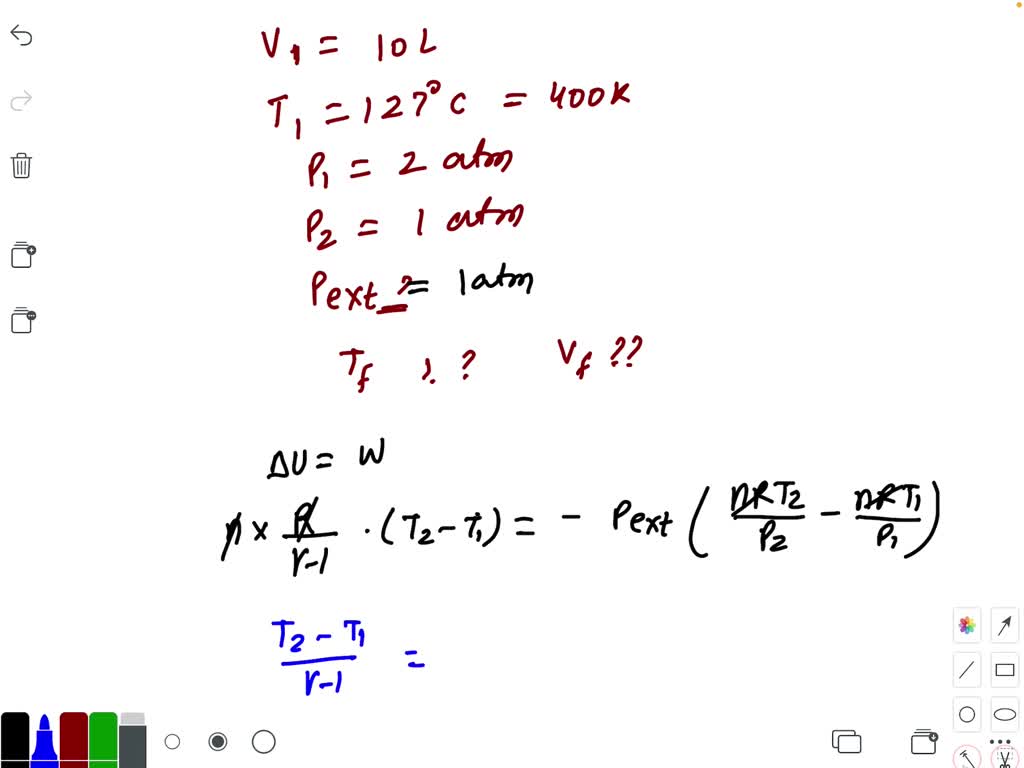 V₁ = 10 L
T₁ = 127°C = 400K
P₁ = 2 atm
P₂ = 1 atm
Pext ? = 1 atm
Tf ? ? Vf ??
ΔU = W
n × R/(r-1) · (T₂ - T₁) = - Pext (nRT₂/P₂ - nRT₁/P₁)
(T₂ - T₁)/(r-1) =